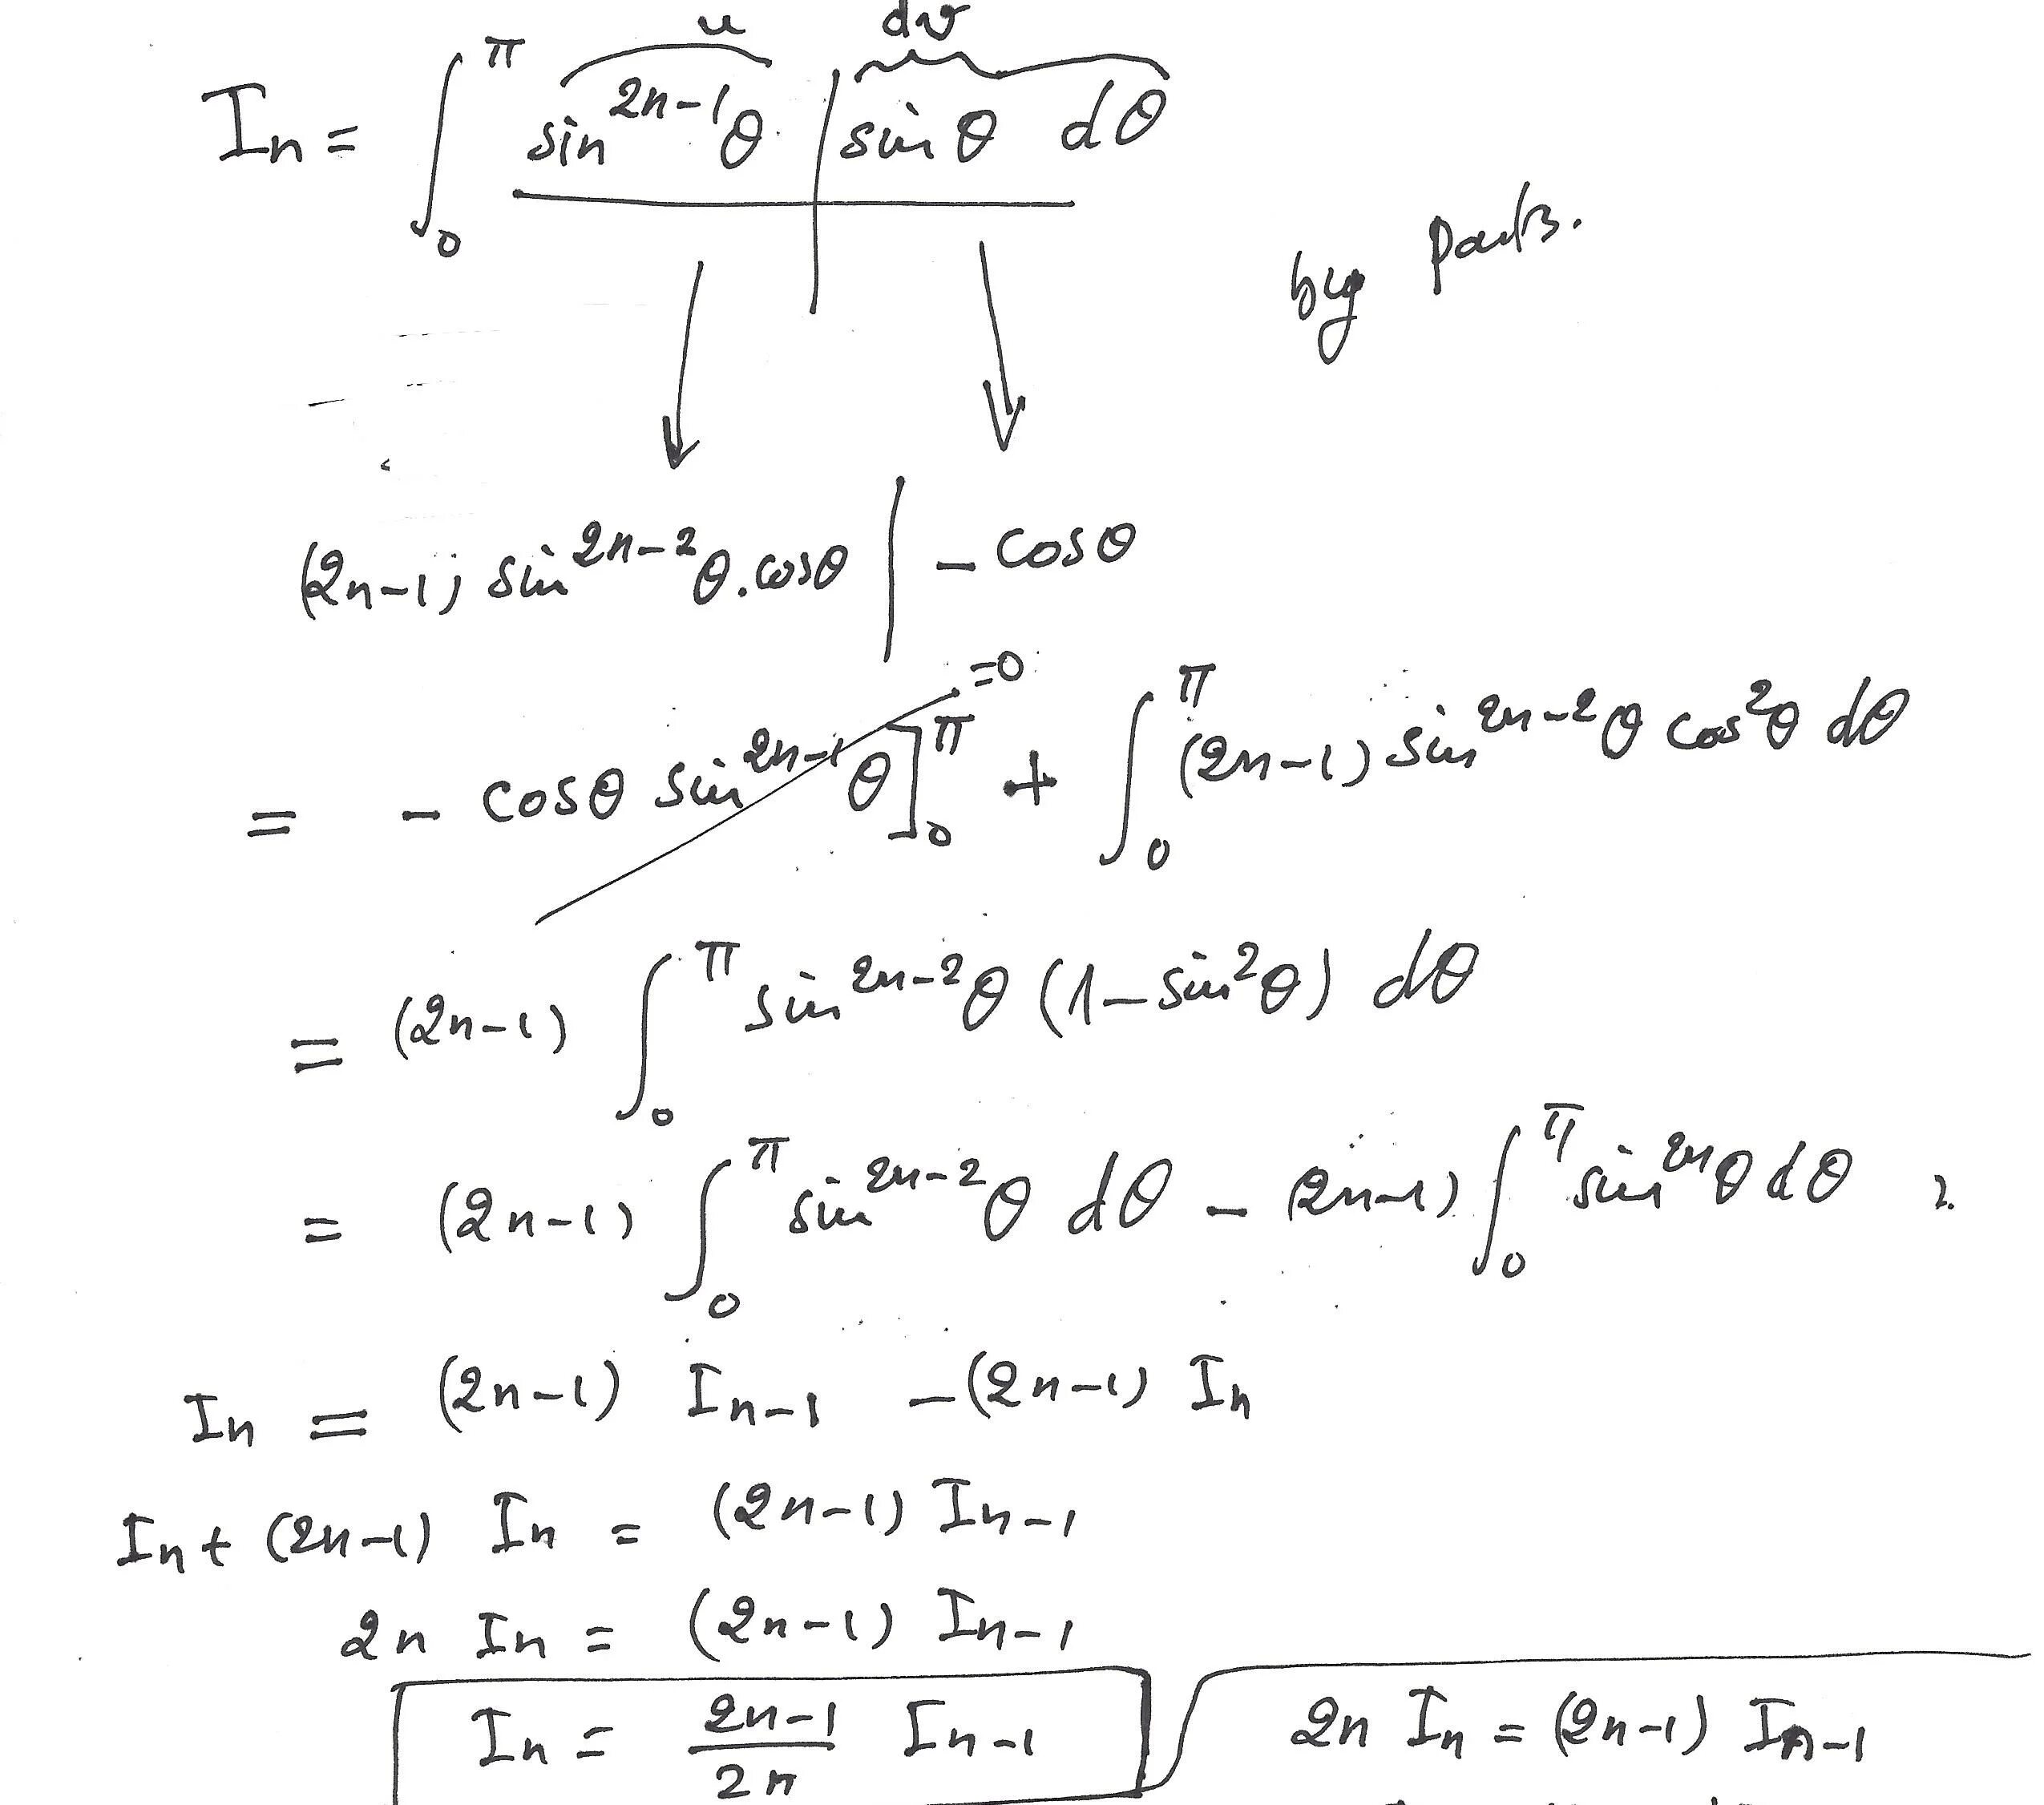 u dv
Iₙ = ∫₀^π sin²ⁿ⁻¹θ | sin θ dθ
by parts.
(2n-1) sin²ⁿ⁻²θ.cosθ | - cosθ
= - cosθ sin²ⁿ⁻¹θ]₀^π =0 + ∫₀^π (2n-1) sin²ⁿ⁻²θ cos²θ dθ
= (2n-1) ∫₀^π sin²ⁿ⁻²θ (1-sin²θ) dθ
= (2n-1) ∫₀^π sin²ⁿ⁻²θ dθ - (2n-1) ∫₀^π sin²ⁿθ dθ
Iₙ = (2n-1) Iₙ₋₁ -(2n-1) Iₙ
Iₙ + (2n-1) Iₙ = (2n-1) Iₙ₋₁
2n Iₙ = (2n-1) Iₙ₋₁
Iₙ = (2n-1)/2n Iₙ₋₁
2n Iₙ = (2n-1) Iₙ₋₁